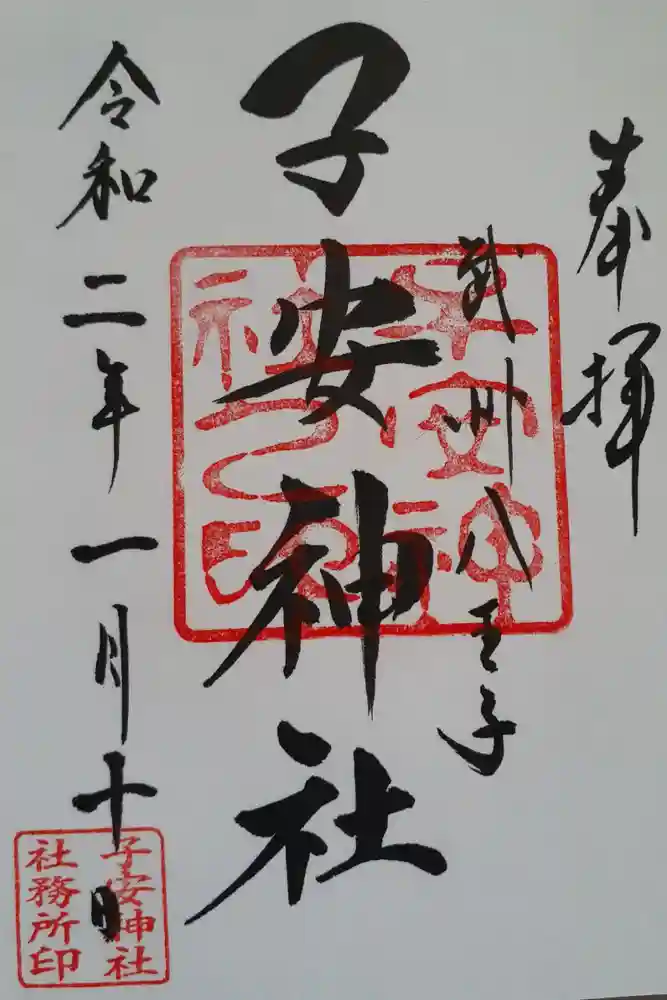 奉拝
武州八王子
子安神社
子安神
社之印
令和二年一月十日
子安神社
社務所印